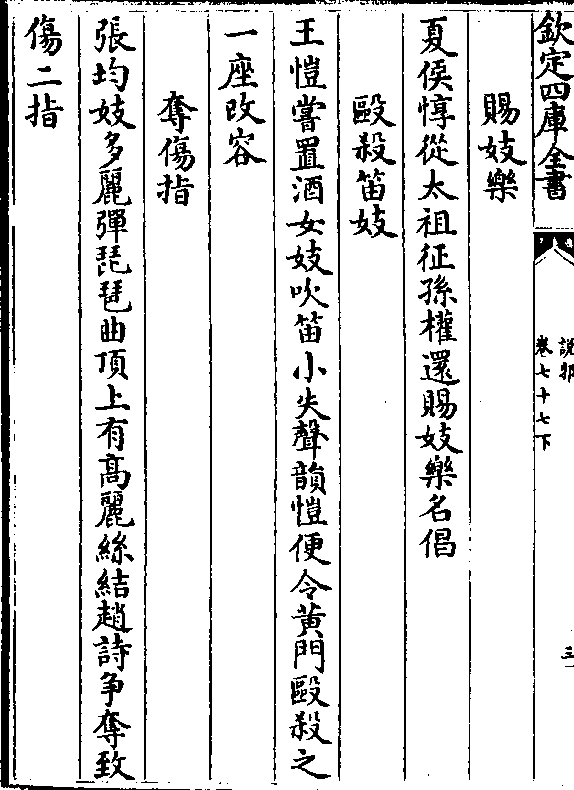 欽定四庫全書
說郛
卷七十七下
三
賜妓樂
夏侯惇從太祖征孫權還賜妓樂名倡
毆殺笛妓
王愷嘗置酒女妓吹笛小失聲韻愷便令黃門毆殺之
一座改容
奪傷指
張均妓多麗彈琵琶曲頂上有高麗絲結趙詩争奪致
傷二指